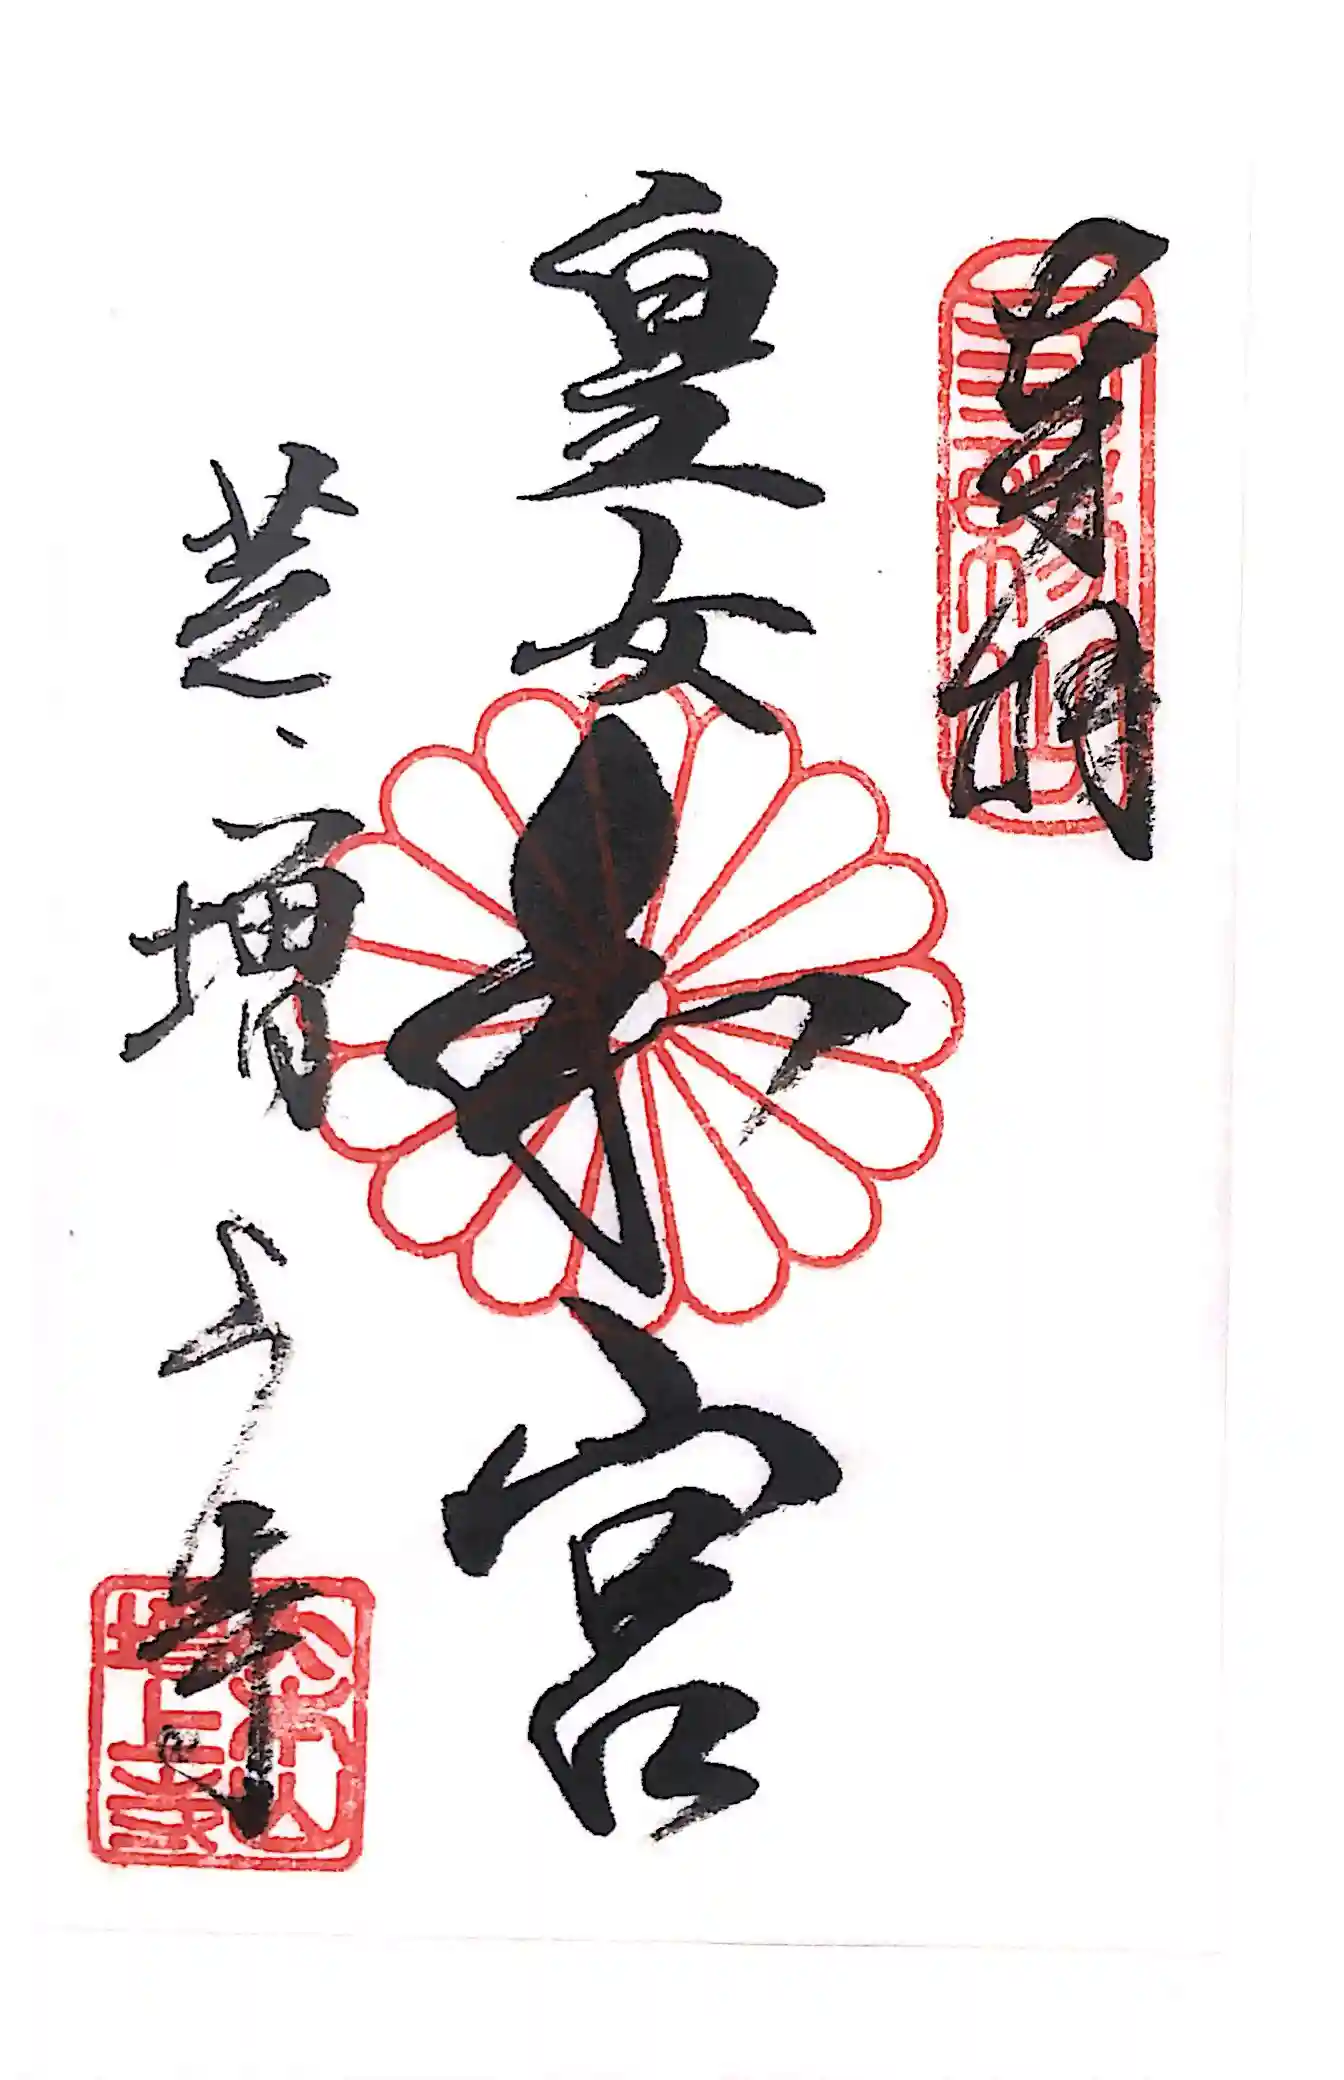 奉拝
皇女和宮
芝、増上寺
大本山
増上寺